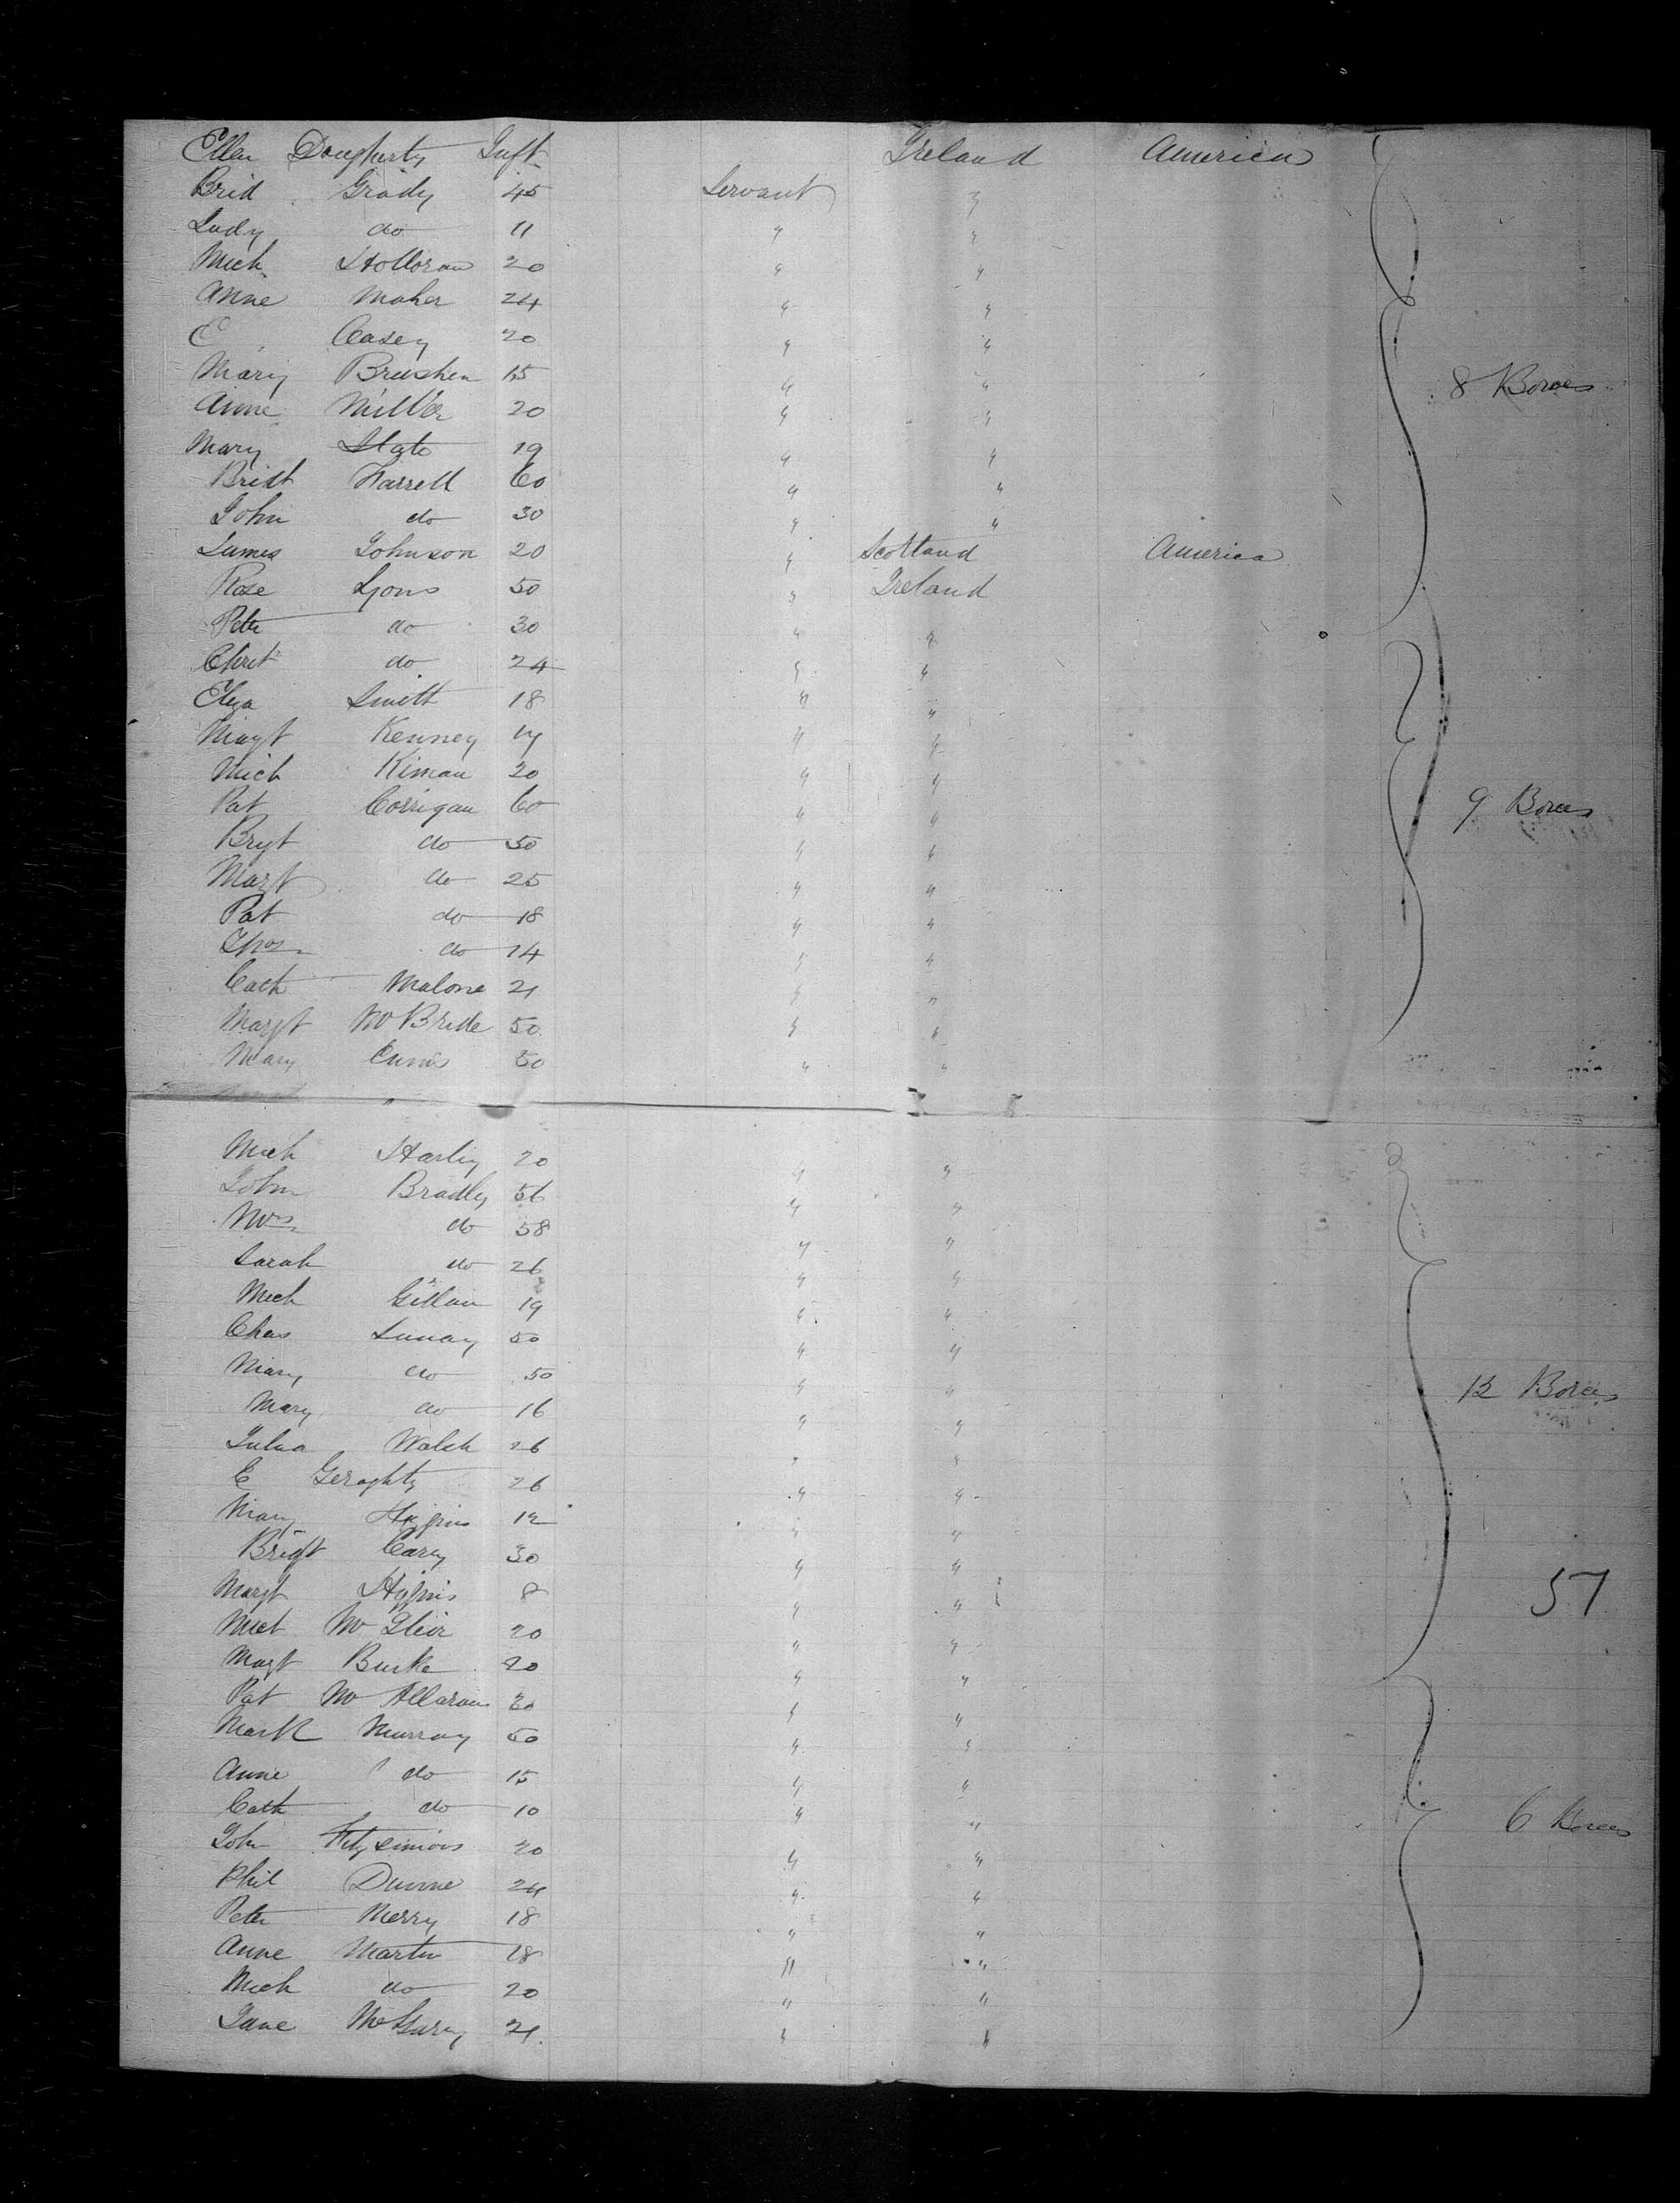 Ellen Dougherty Inft Ireland America
Brid Grady 45 Servant "
Judy do 11 " "
Mich Holloran 20 " "
Anne Maher 24 " "
C Casey 20 " "
Mary 15 " "
8 Boxes
Anne Miller 20 " "
Mary 19 " "
Bridt Farrell 60 " "
John do 30 " "
James Johnson 20 " Scotland America
Rose Lyons 50 " Ireland
Peter do 30 " "
Christ do 24 " "
Eliza Smith 18 " "
Margt Kenney 17 " "
Mich Kiman 20 " "
Pat Corrigan 60 " "
9 Boxes
Bryt do 50 " "
Margt do 25 " "
Pat do 18 " "
Thos do 14 " "
Cath Malone 21 " "
Margt McBride 50 " "
Mary Ennis 50 " "
Mich Harley 20 " "
John Bradly 56 " "
Mrs do 58 " "
Sarah do 26 " "
Mich Gillan 19 " "
Chas Lunay 50 " "
Mary do 50 " "
12 Boxes
Mary do 16 " "
Julia Walsh 26 " "
C Geraghty 26 " "
Mary Higgins 12 " "
Bright Carey 30 " "
Margt Higgins 8 " "
57
Mict 20 " "
Margt Burke 20 " "
Pat 20 " "
Mark Murray 50 " "
Anne do 15 " "
Cath do 10 " "
6 Boxes
John Fitzsimons 20 " "
Phil Dunne 24 " "
Peter Merry 18 " "
Anne Martin 18 " "
Mich do 20 " "
Jane 21 " "